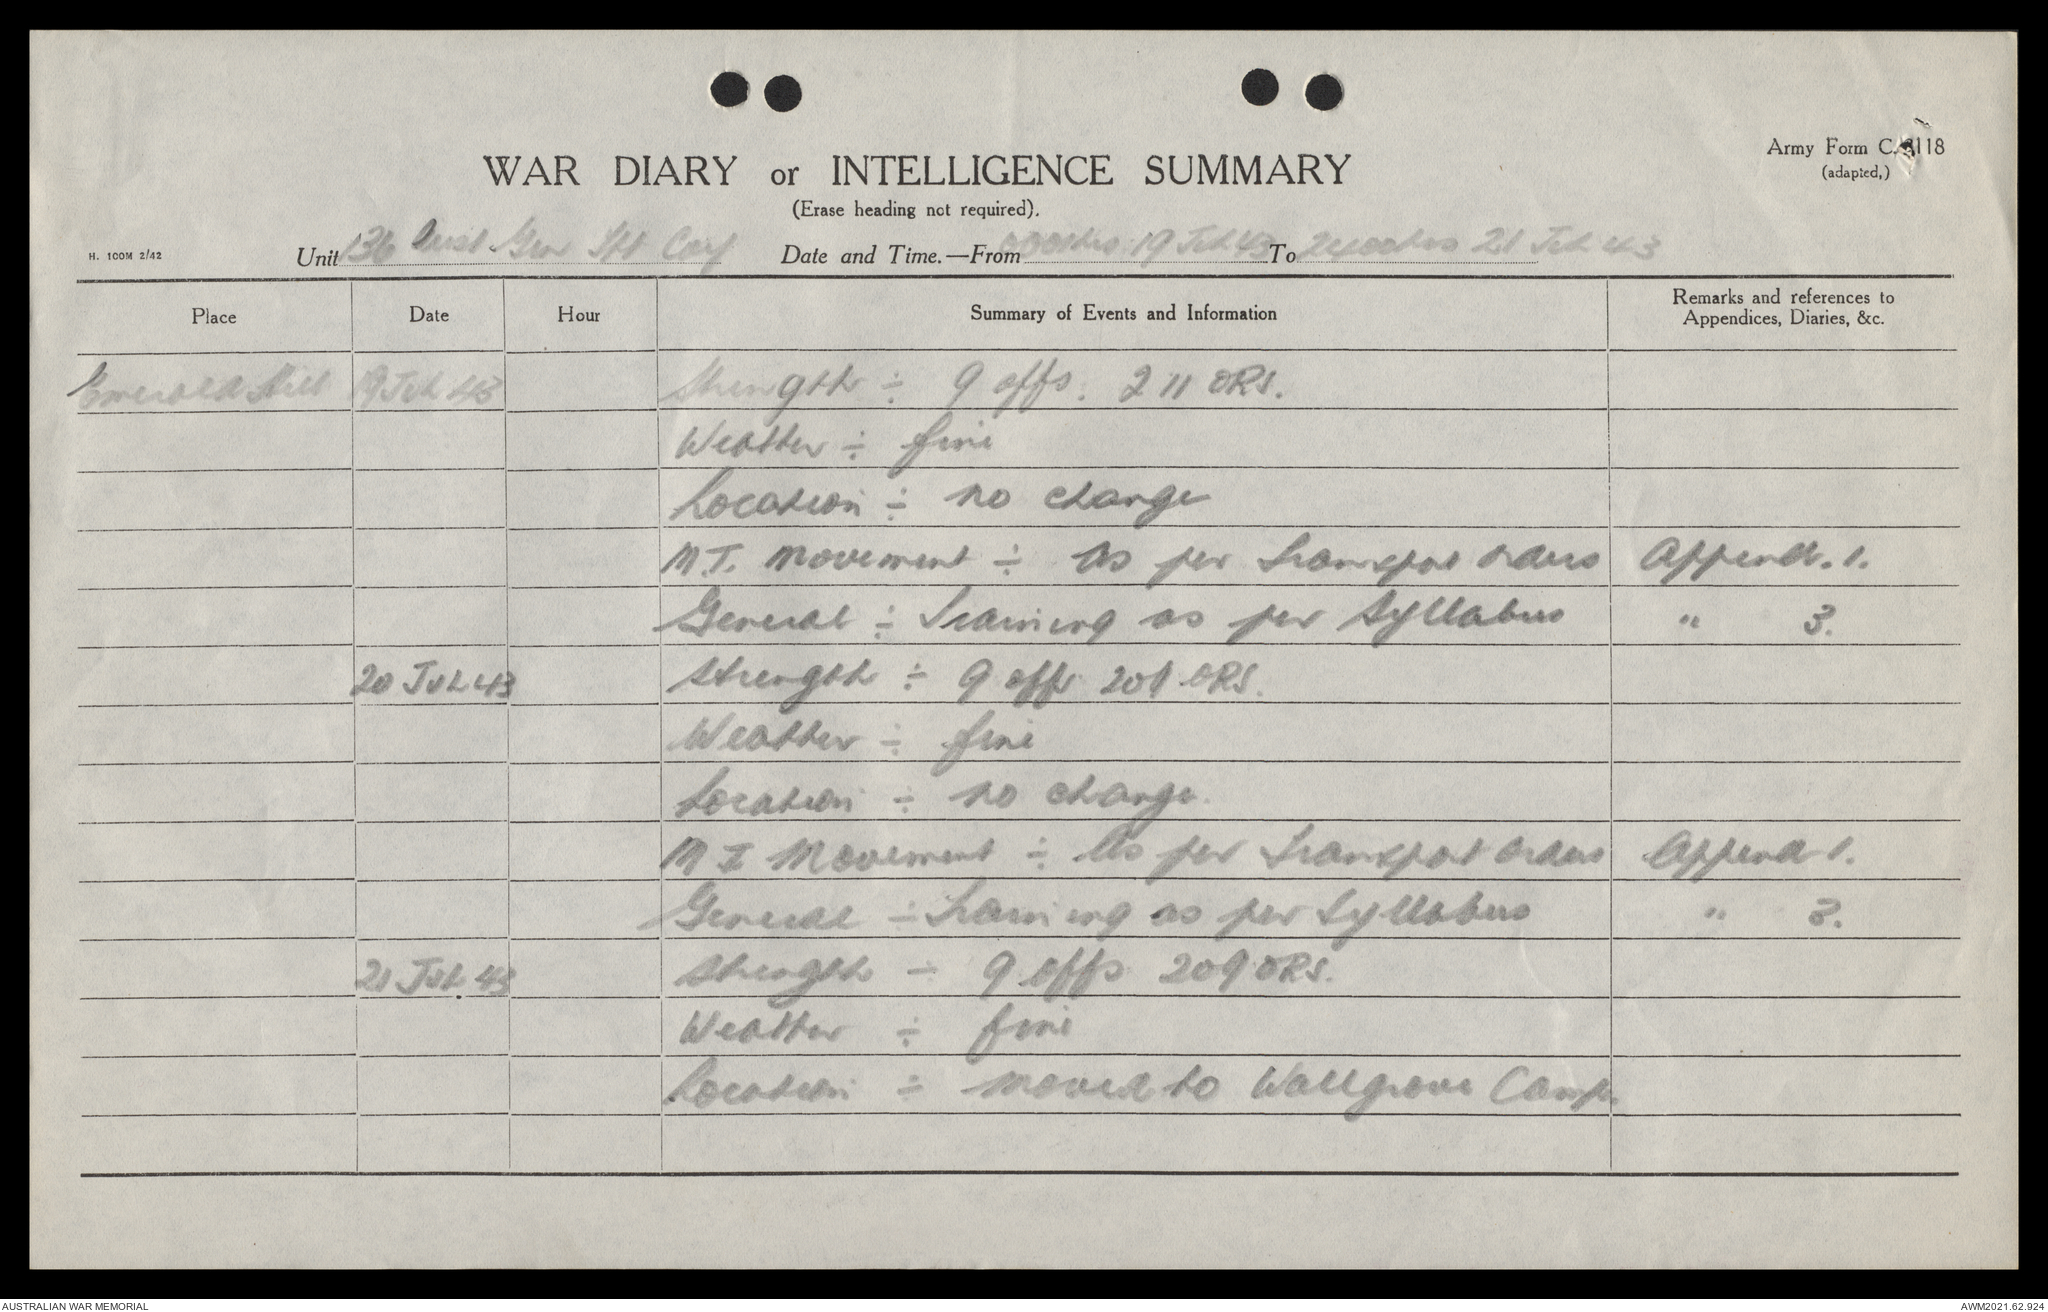 Army Form C. 2118
(adapted,)
WAR DIARY or INTELLIGENCE SUMMARY
(Erase heading not required).
H. 100M 2/42
Unit 136 Aust Gen Tpt Coy Date and Time.—From 0001hrs 19 Jul 43 To 2400hrs 21 Jul 43
Place Date Hour Summary of Events and Information Remarks and references to
Appendices, Diaries, &c.
Emerald Hill 19 Jul 43 Strength ÷ 9 offs. 211 ORS.
Weather ÷ fine
Location ÷ no change
M.T. Movement ÷ As per Transport orders Append. 1.
General ÷ Training as per Syllabus " 3.
20 Jul 43 Strength ÷ 9 offs 201 ORS.
Weather ÷ fine
Location ÷ no change.
M T Movement ÷ As per Transport orders Append 1.
General ÷ Training as per Syllabus " 3.
21 Jul 43 Strength ÷ 9 offs 209 ORS.
Weather ÷ fine
Location ÷ moved to Wallgrove Camp.
AUSTRALIAN WAR MEMORIAL AWM2021.62.924